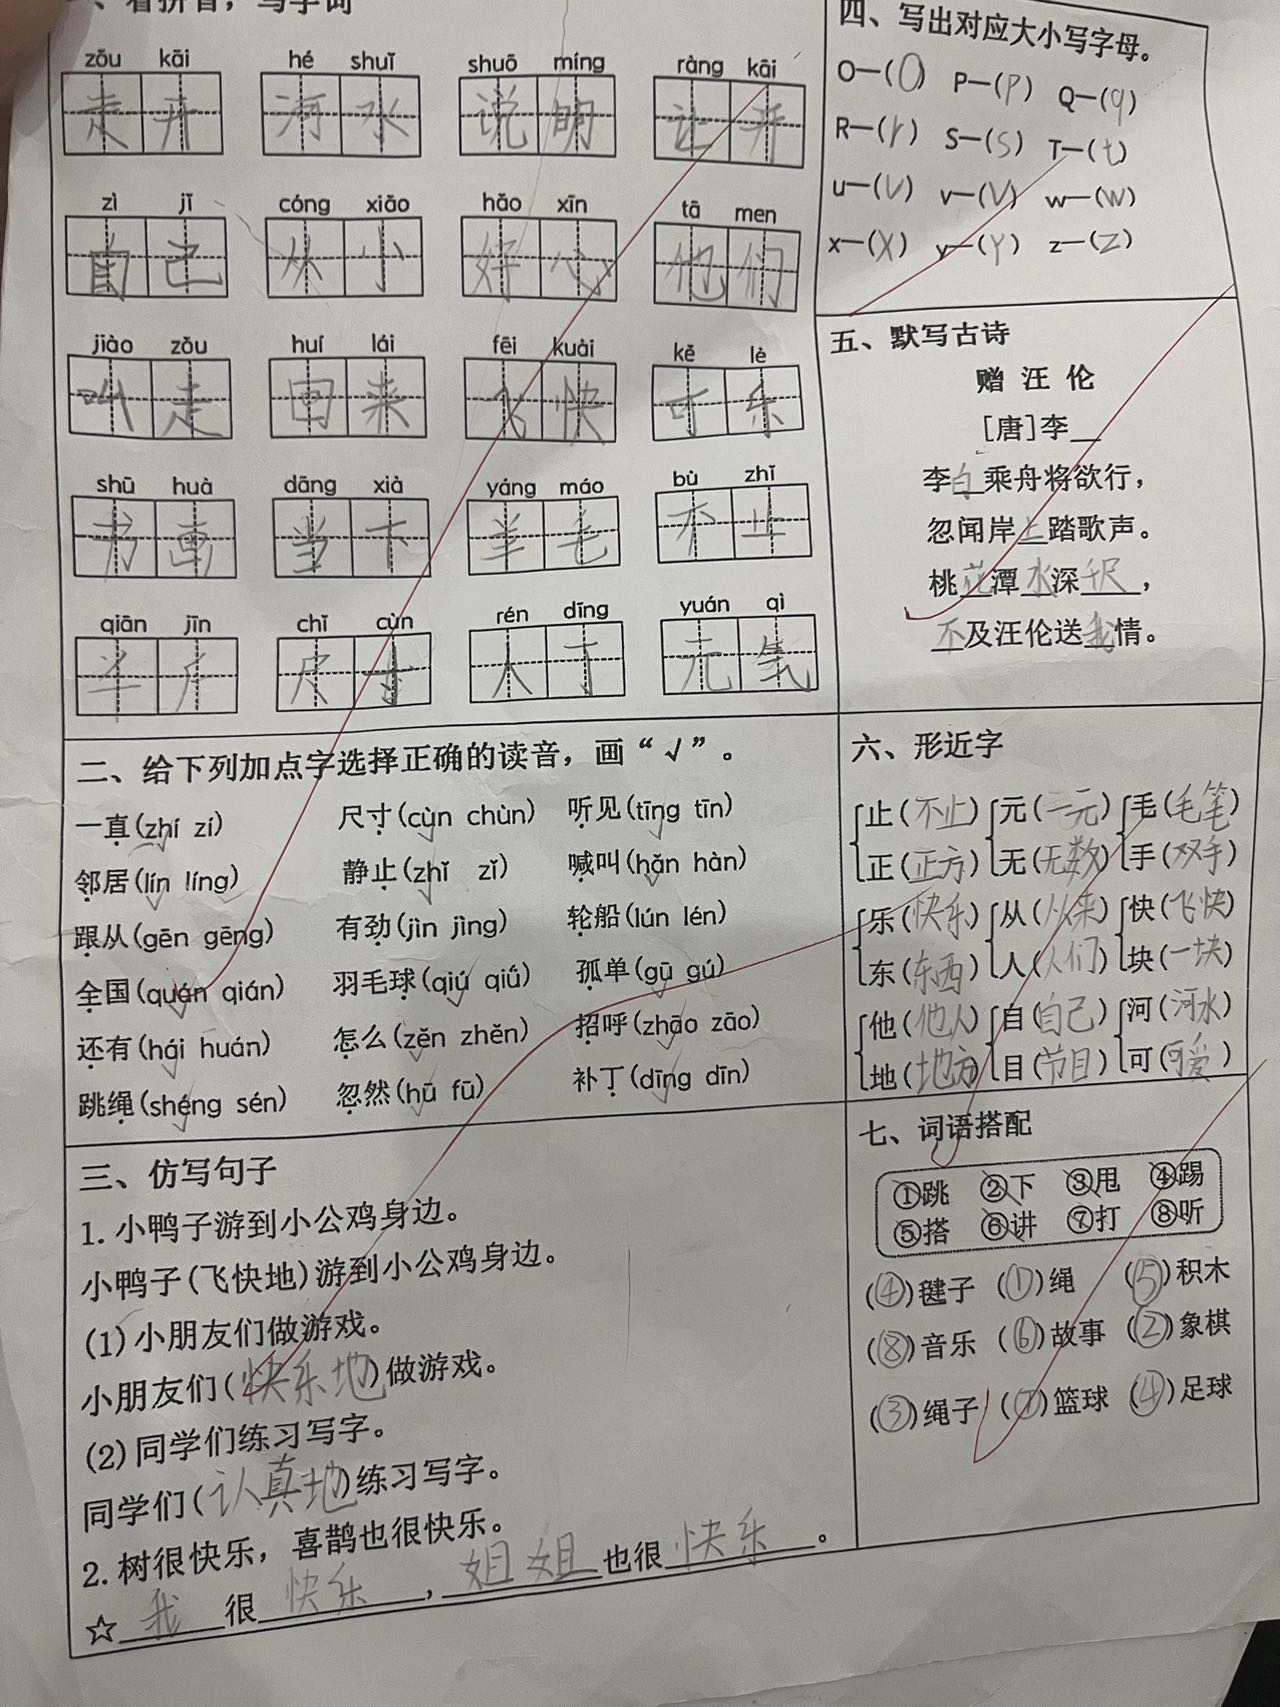 一、看拼音，写字词
zǒu kāi hé shuǐ shuō míng ràng kāi
走开 河水 说明 让开
zì jǐ cóng xiǎo hǎo xīn tā men
自己 从小 好心 他们
jiào zǒu huí lái fēi kuài kě lè
叫走 回来 飞快 可乐
shū huà dāng xià yáng máo bù zhǐ
书画 当下 羊毛 不止
qiān jīn chǐ cùn rén dīng yuán qì
半斤 尺寸 人丁 元气
二、给下列加点字选择正确的读音，画“√”。
一直(zhí zí) 尺寸(cùn chùn) 听见(tīng tīn)
邻居(lín líng) 静止(zhǐ zǐ) 喊叫(hǎn hàn)
跟从(gēn gēng) 有劲(jìn jìng) 轮船(lún lén)
全国(quán qián) 羽毛球(qiú qiǘ) 孤单(gū gú)
还有(hái huán) 怎么(zěn zhěn) 招呼(zhāo zāo)
跳绳(shéng sén) 忽然(hū fū) 补丁(dīng dīn)
三、仿写句子
1.小鸭子游到小公鸡身边。
小鸭子(飞快地)游到小公鸡身边。
(1)小朋友们做游戏。
小朋友们(快乐地)做游戏。
(2)同学们练习写字。
同学们(认真地)练习写字。
2.树很快乐，喜鹊也很快乐。
☆我很快乐，姐姐也很快乐。
四、写出对应大小写字母。
O—(O) P—(p) Q—(q)
R—(r) S—(s) T—(t)
u—(U) v—(V) w—(W)
x—(X) y—(Y) z—(Z)
五、默写古诗
赠 汪 伦
[唐]李__
李白乘舟将欲行，
忽闻岸上踏歌声。
桃花潭水深千尺，
不及汪伦送我情。
六、形近字
止(不止) 元(一元) 毛(毛笔)
正(正方) 无(无数) 手(双手)
乐(快乐) 从(从来) 快(飞快)
东(东西) 人(人们) 块(一块)
他(他人) 自(自己) 河(河水)
地(地方) 目(节目) 可(可爱)
七、词语搭配
①跳 ②下 ③甩 ④踢
⑤搭 ⑥讲 ⑦打 ⑧听
(④)毽子 (①)绳 (⑤)积木
(⑧)音乐 (⑥)故事 (②)象棋
(③)绳子 (⑦)篮球 (④)足球